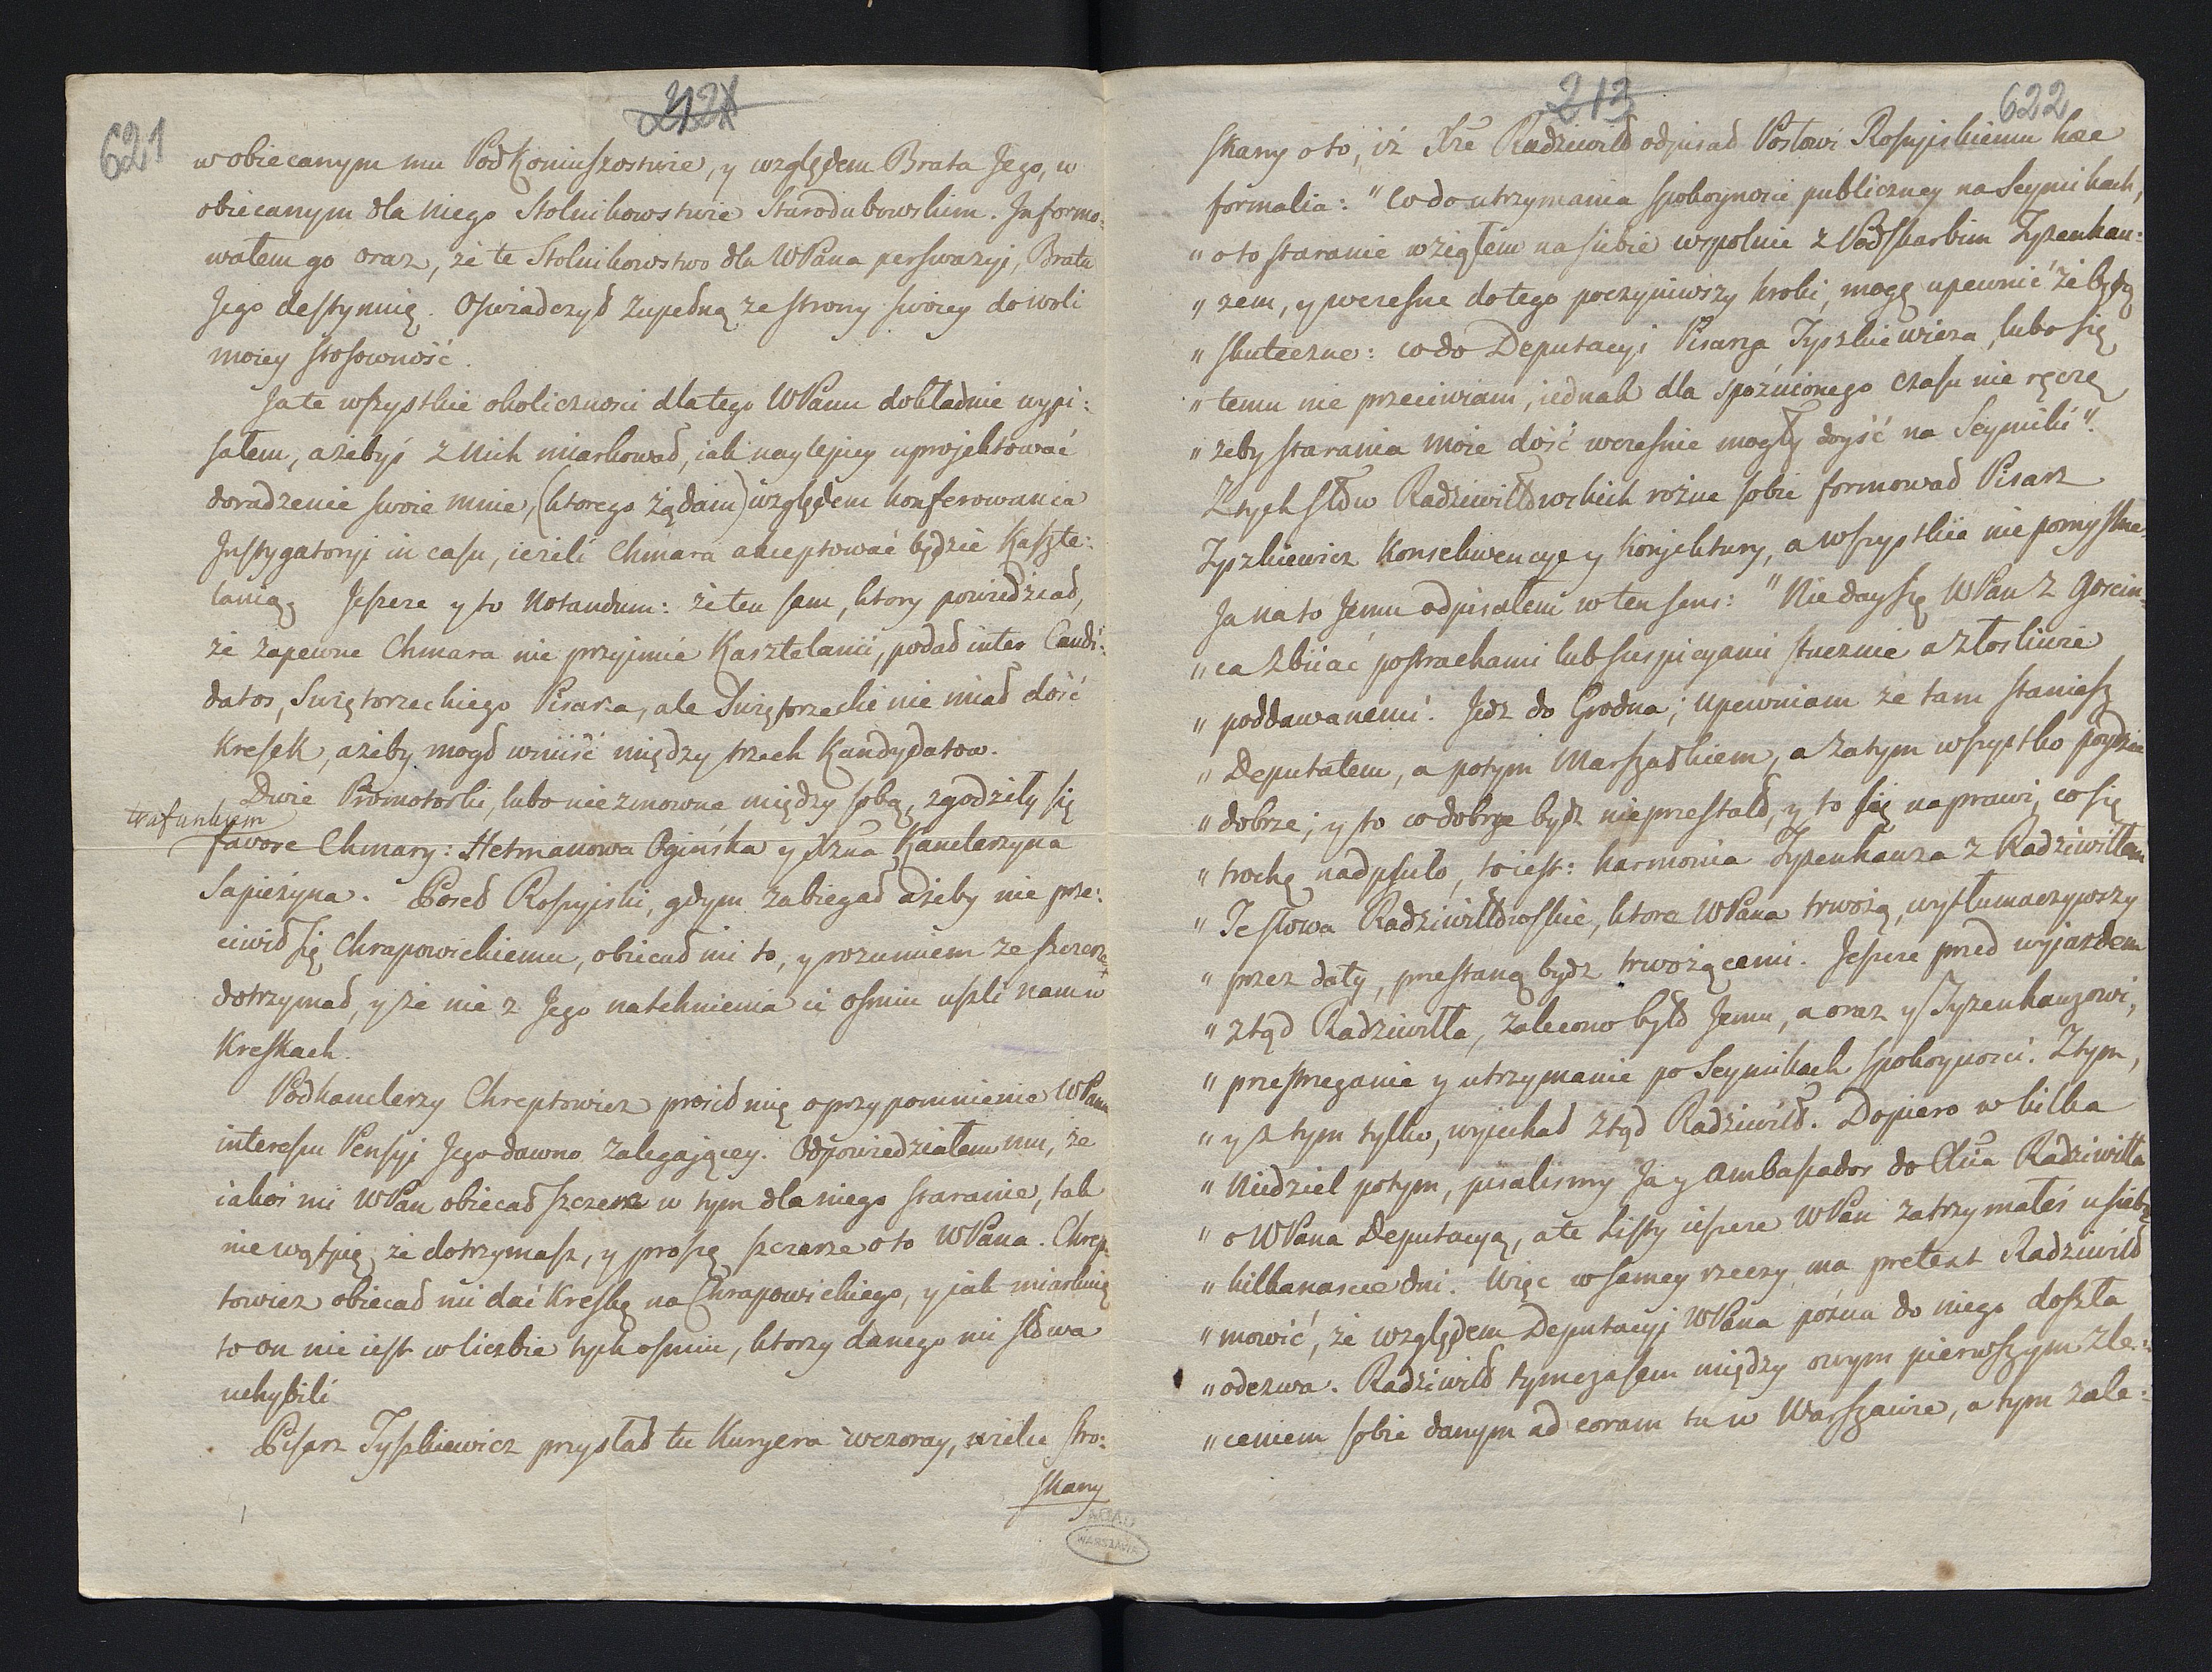 621
212
w obiecanym mu Podkoniuszostwie, y względem Brata Jego, w
obiecanym dla niego Stolnikowstwie Starodubowskim. Informo:
wałem go oraz, że te Stolnikowstwo dla WPana perswazyi, Bratu
Jego destynuię. Oświadczył zupełną ze strony swoiey do woli
moiey stosowność.
Ja te wszystkie okoliczności dlatego WPanu dokładnie wypi:
sałem, ażebyś z nich miarkował, iak naylepiey uprojektować
doradzenie swoie mnie, (ktorego żądam) względem konferowania
Instygatoryi in casu, ieżeli Chmara akceptować będzie Kaszte:
lanią. Jeszcze y to Notandum: że ten sam, ktory powiedział,
że zapewne Chmara nie przyimie Kasztelanii, podał inter Candi:
datos, Swiętorzeckiego Pisarza, ale Swiętorzecki nie miał dość
Kresek, ażeby mogł wniść między trzech Kandydatow.
Dwie Promotorki, lubo nie zmowne między sobą, zgodziły się
trafunkiem
favore Chmary: Hetmanowa Ogińska y Xżna Kanclerzyna
Sapieżyna. Poseł Rossyiski, gdym zabiegał ażeby nie prze:
ciwił się Chrapowickiemu, obiecał mi to, y rozumiem że szczerze
dotrzymał, y że nie z Jego natchnienia ci ośmiu uszli nam w
Kreskach.
Podkanclerzy Chreptowicz prosił mię o przypomnienie WPanu
interesu Pensyi Jego dawno zalegaiącey. Odpowiedziałem mu, że
iakoś mi WPan obiecał szczere w tym dla niego staranie, tak
nie wątpię, że dotrzymasz, y proszę szczerze o to WPana. Chrep:
towicz obiecał mi dać Kreskę na Chrapowickiego, y jak miarkuię
to on nie iest w liczbie tych ośmiu, ktorzy danego mi słowa
uchybili
Pisarz Tyszkiewicz przysłał tu Kuryera wczoray, wielce stro:
skany
skany
213
622
skany o to, iż Xże Radziwiłł odpisał Posłowi Rossyiskiemu haec
formalia: "Co do utrzymania spokoyności publiczney na Seymikach,
" o to staranie wziąłem na siebie wspolnie z Podskarbim Tyzenhau:
" zem, y wczesne do tego poczyniwszy kroki, mogę upewnić że będą
" skuteczne: co do Deputacyi Pisarza Tyszkiewicza, lubo się
" temu nie przeciwiam, iednak dla spoźnionego czasu nie ręczę
" żeby starania moie dość wcześnie mogły doyść na Seymiki".
Z tych słow Radziwiłłowskich rożne sobie formował Pisarz
Tyszkiewicz Konsekwencye y Konjektury, a wszystkie niepomyślne.
Ja na to Jemu odpisałem w ten sens: "Nie day się WPan z Gościń:
" ca zbiiać postrachami lub suspicyami sztucznie a złośliwie
" poddawanemi. Jedz do Grodna; upewniam że tam staniesz
" Deputatem, a potym Marszałkiem, a zatym wszystko poydzie
" dobrze; y to co dobrze bydz nieprzestało, y to się naprawi, co się
" trochę nadpsuło, to iest: harmonia Tyzenhauza z Radziwiłłem
" Te słowa Radziwiłłowskie, ktore WPana trwożą, wytłumaczywszy
" przez daty, przestaną bydz trwożącemi. Jeszcze przed wyjazdem
" ztąd Radziwiłła, zalecono było Jemu, a oraz y Tyzenhauzowi,
" przestrzeganie y utrzymanie po Seymikach spokoyności. Z tym,
" y z tym tylko, wyjechał ztąd Radziwiłł. Dopiero w kilka
" Niedziel potym, pisaliśmy Ja y Ambasador do Xcia Radziwiłła
" o WPana Deputacyą, a te Listy ieszcze WPan zatrzymałeś u siebie
" kilkanaście dni. Więc w samey rzeczy ma pretext Radziwiłł
" mowić, że względem Deputacyi WPana poźna do niego doszła
" odezwa. Radziwiłł tymczasem między owym pierwszym zle:
" ceniem sobie danym ad coram tu w Warszawie, a tym zale:
AGAD
WARSZAWA